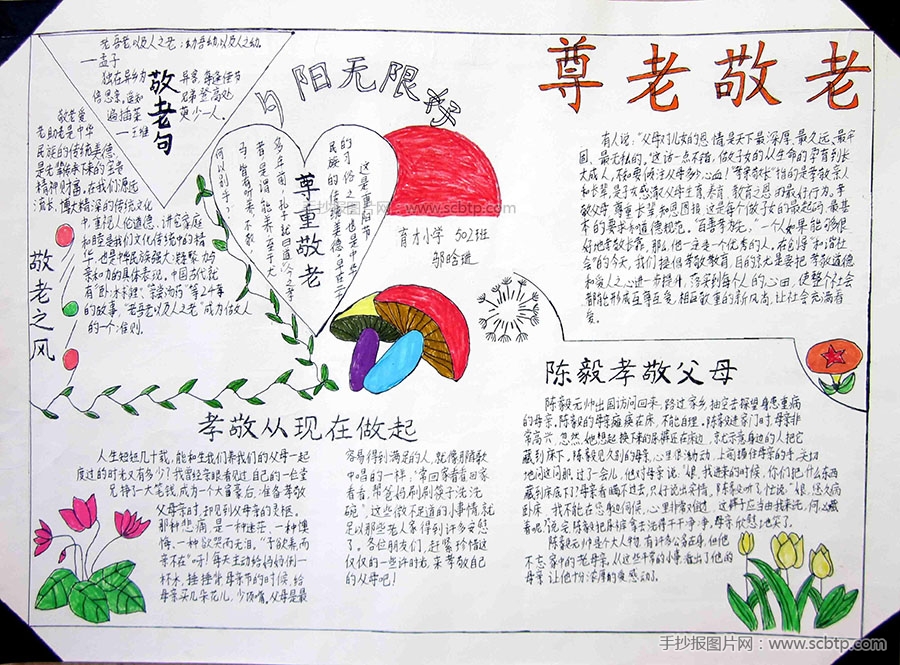 尊老敬老
老吾老以及人之老；幼吾幼以及人之幼。
—孟子
独在异乡为异客，每逢佳节
倍思亲。遥知兄弟登高处，
遍插茱萸少一人。
—王维
敬老句
夕阳无限
敬老爱
老助老是中华
民族的传统美德，
是先辈传承下来的宝贵
精神财富，在我们源远
流长、博大精深的传统文化
中，重视人伦道德、讲究家庭
和睦是我们文化传统中的精
华，也是中华民族强大凝聚力与
亲和力的具体表现，中国古代就
的故事，“老吾老以及人之老”成为做人
的一个准则。
敬老之风
尊重敬老
这是重阳节
手抄报图片网：www.scbtp.com
育才小学 502班
有人说，“父母对儿女的恩情是天下最深厚、最久远、最牢
固、最无私的，”这话一点不错，做子女的从生命的孕育到长
大成人，不知要倾注父母多少心血！“孝亲敬长”指的是孝敬亲人
和长辈，是子女感激父母生育、养育、教育之恩的最好行为。孝
敬父母，尊重长辈和恩图报，这是每个做子女的最起码、最基
本的要求和道德规范，“百善孝为先，”一个人如果能够很
好地孝敬长辈，那么，他一定是一个优秀的人，在创造“和谐社
会”的今天，我们提倡孝敬教育，目的就是要把孝敬道德
和爱人之心进一步提升，落实到每个人的心田，使整个社会
都能形成互尊互爱，相互敬重的新风尚，让社会充满着
爱。
陈毅孝敬父母
陈毅元帅出国访问回来，路过家乡，抽空去探望身患重病
的母亲。陈毅的母亲瘫痪在床，不能自理。陈毅进家门时，母亲非
常高兴，忽然，她想起换下来的尿裤还在床边，就示意身边的人把它
藏到床下。陈毅见久别的母亲，心里很激动，上前握住母亲的手，关切
地问这问那。过了一会儿，他对母亲说：“娘，我进来的时候，你们把什么东西
藏到床底下了？”母亲看瞒不过去，只好说出实情，陈毅听了，忙说：“娘，您久病
卧床，我不能在您身边伺候，心里非常难过，这裤子应当由我来洗，何必藏
着呢。”
陈毅元帅是个大人物，有许多公务在身，但他
不忘家中的老母亲。从这些平常的小事，做出了他的
孝敬从现在做起
人生短短几十载，能和生我们养我们的父母一起
度过的时光又有多少？我曾经亲眼看见过自己的一位堂
兄挣了大笔钱，成为一个大富豪后，准备孝敬
父母亲时，却见到父母亲的灵柩。
那种悲痛，是一种迷茫、一种懊
悔、一种欲哭而无泪，“子欲养而
亲不在”呀！每天主动给妈妈倒一
杯水，捶捶背，母亲节的时候，给
母亲买几朵花儿，少顶嘴，父母是最
容易得到满足的人，就像那首歌
中唱的一样：“常回家看看，回家
看看，帮爸妈刷刷筷子洗洗
碗”，这些微不足道的小事情，就
足以那些老人家得到许多安慰
了。各位朋友们，赶紧珍惜这
仅仅的一些时光，来孝敬自己
的父母吧！
手抄报图片网：www.scbtp.com